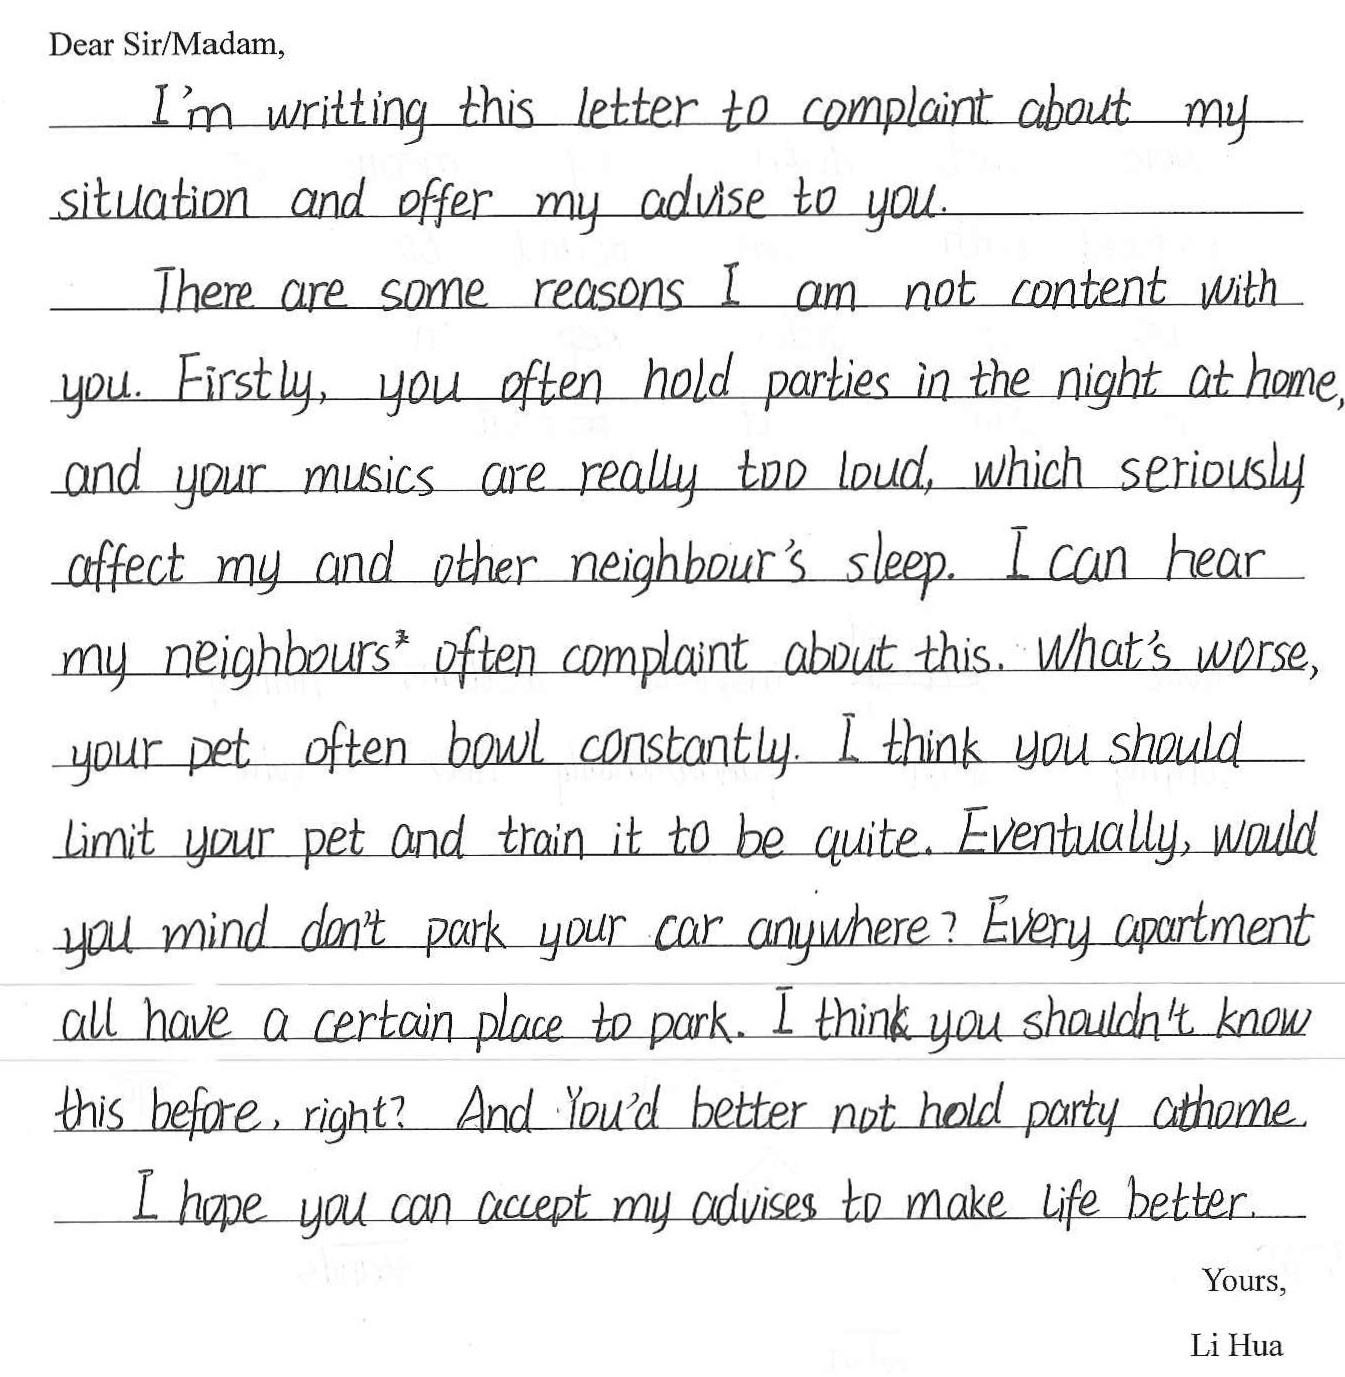 Dear Sir/Madam,
I'm writting this letter to complaint about my
situation and offer my advise to you.
There are some reasons I am not content with
you. Firstly, you often hold parties in the night at home,
and your musics are really too loud, which seriously
affect my and other neighbour's sleep. I can hear
my neighbours' often complaint about this. What's worse,
your pet often bowl constantly. I think you should
limit your pet and train it to be quite. Eventually, would
you mind don't park your car anywhere? Every apartment
all have a certain place to park. I think you shouldn't know
this before, right? And You'd better not hold party athome.
I hope you can accept my advises to make life better.
Yours,
Li Hua